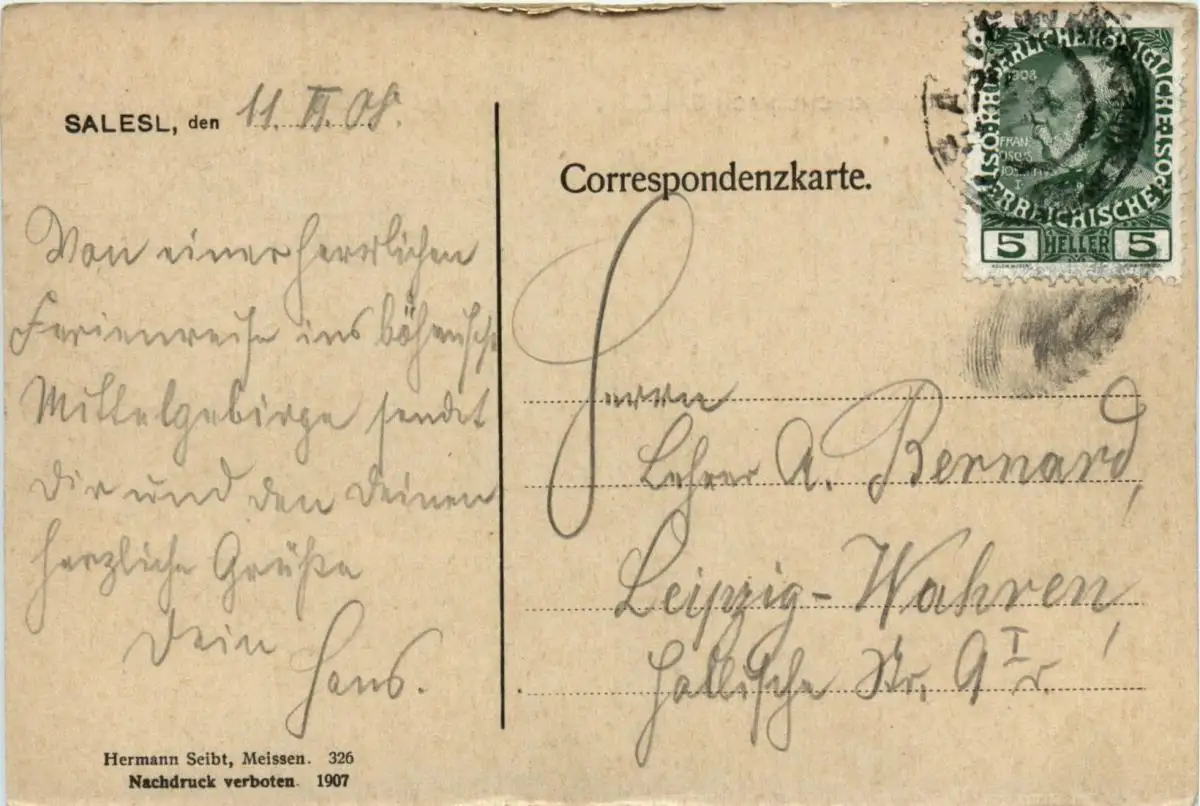 SALESL, den 11. VI. 08.
Von einer herrlichen
Ferienreise ins böhmische
Mittelgebirge sendet
Dir und den Deinen
herzliche Grüße
Dein
Hans.
Hermann Seibt, Meissen. 326
Nachdruck verboten. 1907
Correspondenzkarte.
Herrn
Lehrer A. Bernard,
Leipzig-Wahren,
Hallische Str. 9 I r.
1908
FRAN
CISCUS
JOSEPHUS
I
5 HELLER 5